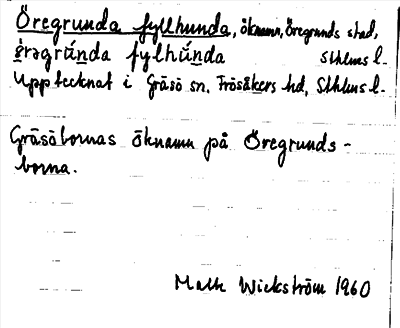 Öregrunda fyllhunda, öknamn, Öregrunds stad,
ȯ́rəgrúnda fylhúnda Sthlms l.
Upptecknat i Gräsö sn, Frösåkers hd, Sthlms l.
Gräsöbornas öknamn på Öregrunds-
borna.
Wickström 1960